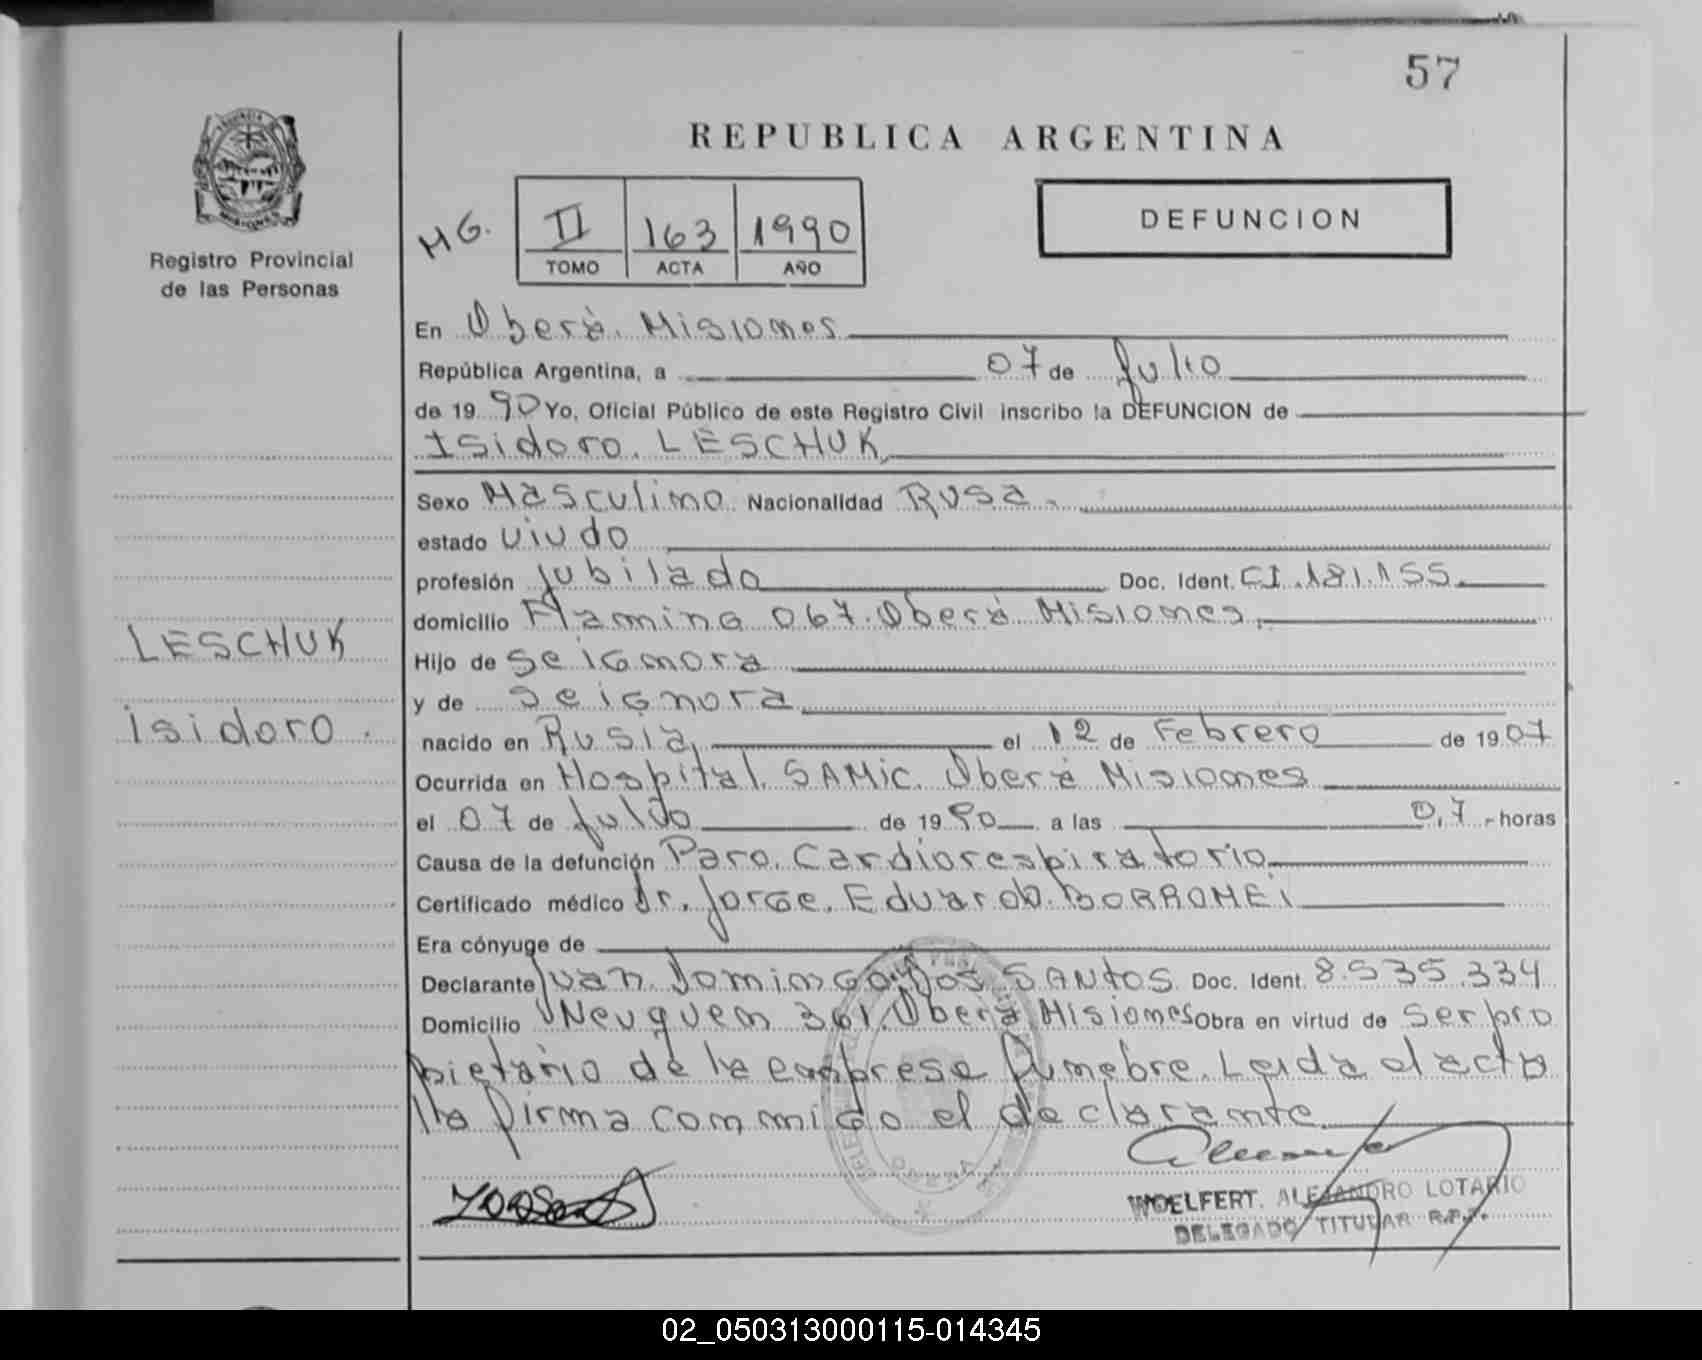 57
REPUBLICA ARGENTINA
Registro Provincial
de las Personas
MG.
II 163 1990
TOMO ACTA AÑO
DEFUNCION
En Oberá. Misiones
República Argentina, a 07 de Julio
de 19 90 Yo, Oficial Público de este Registro Civil inscribo la DEFUNCION de
Isidoro. LESCHUK
Sexo Masculino. Nacionalidad Rusa.
estado viudo
profesión Jubilado Doc. Ident. CI.181.155.
domicilio Flamina 067. Oberá Misiones.
LESCHUK
Hijo de Se ignora
y de Se ignora
isidoro.
nacido en Rusia, el 12 de Febrero de 19 07
Ocurrida en Hospital. SAMic. Oberá Misiones
el 07 de Julio de 19 90 a las 0,7.- horas
Causa de la defunción Paro. Cardiorespiratorio
Certificado médico Dr. Jorge. Eduardo. BORROMEi
Era cónyuge de
Declarante Juan Domingo Dos SANtos. Doc. Ident. 8.535.334
Domicilio Neuquem 361. Oberá Misiones Obra en virtud de Ser pro
pietario de la empresa funebre. Leida el acta
la firma conmigo el declarante.
WOELFERT. ALEJANDRO LOTARIO
DELEGADO TITULAR R.P.P.
02_050313000115-014345